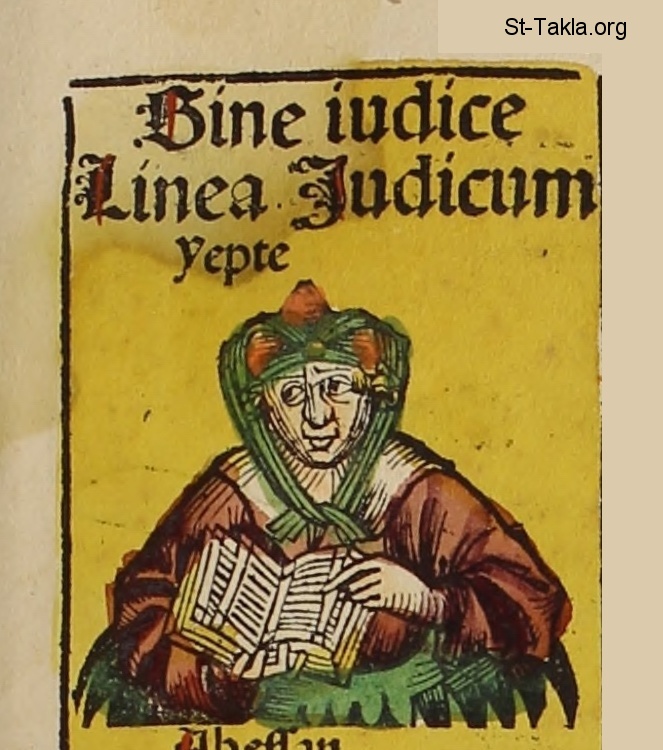 St-Takla.org
Sine iudice
Linea Judicum
yepte
Abessan